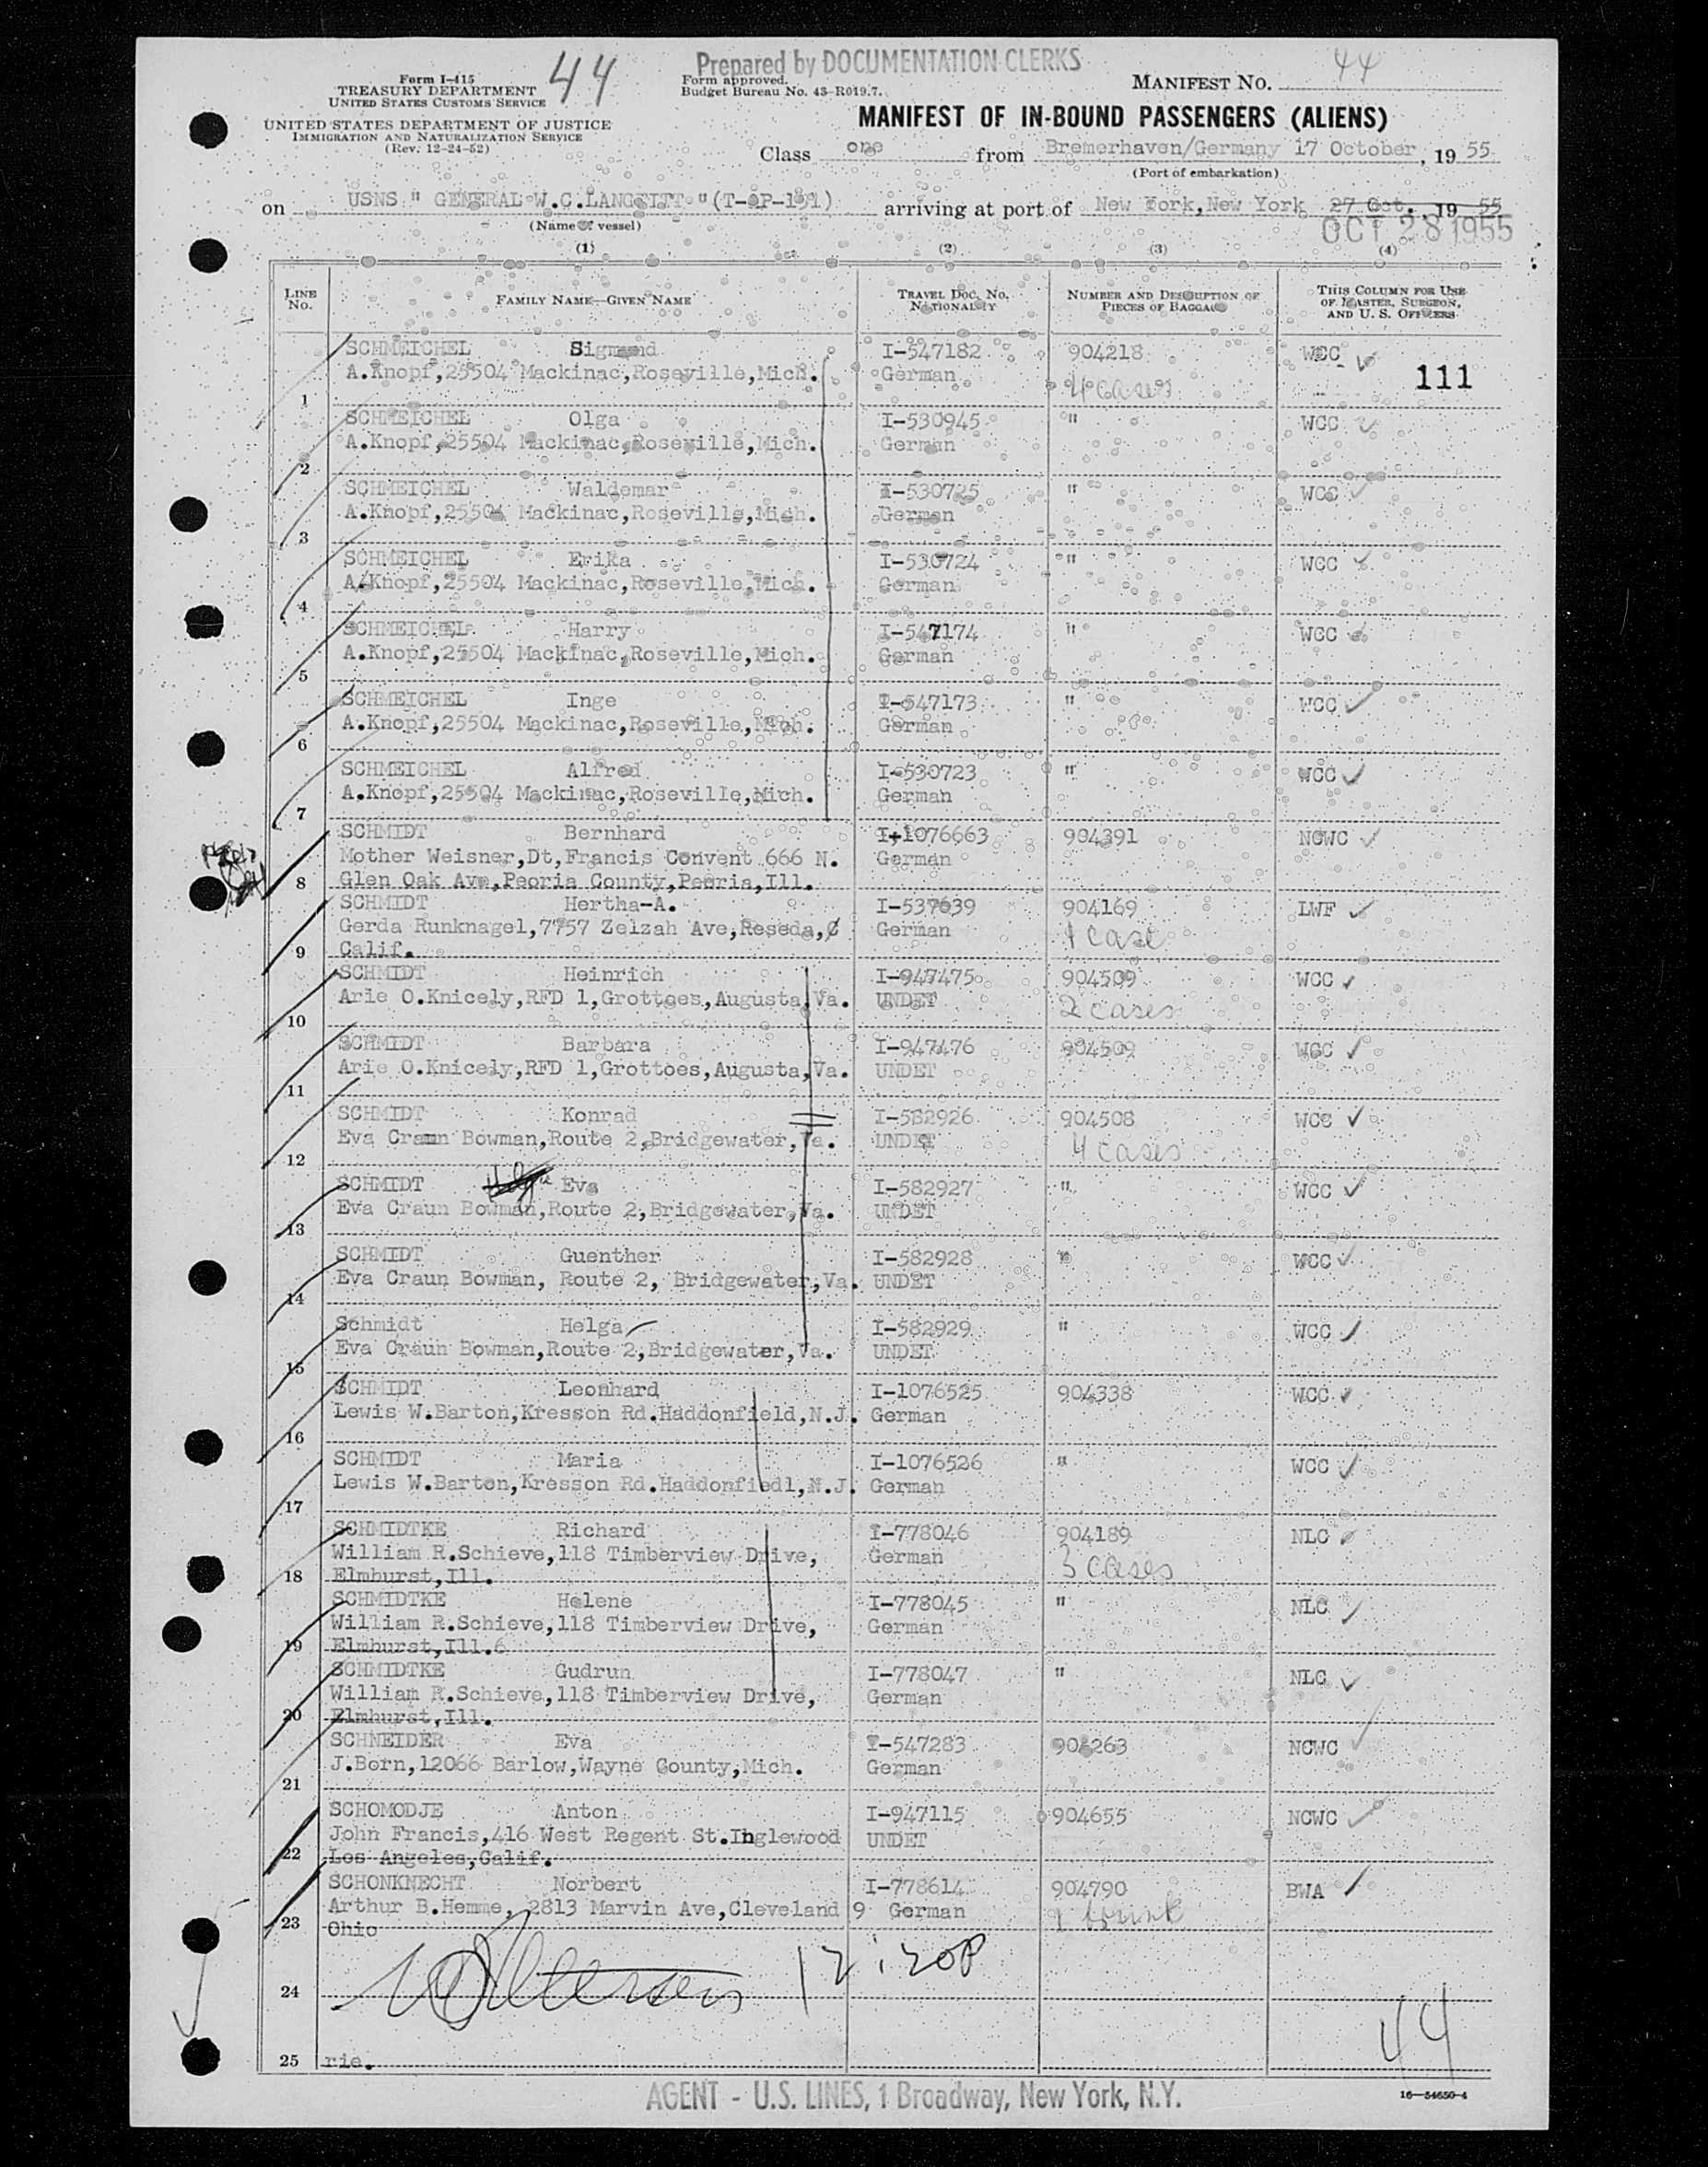 Form I-415
TREASURY DEPARTMENT
UNITED STATES CUSTOMS SERVICE
44
UNITED STATES DEPARTMENT OF JUSTICE
IMMIGRATION AND NATURALIZATION SERVICE
(Rev. 12-24-52)
Prepared by DOCUMENTATION CLERKS
Form approved.
Budget Bureau No. 43-R019.7.
MANIFEST NO. 44
MANIFEST OF IN-BOUND PASSENGERS (ALIENS)
Class one from Bremerhaven/Germany 17 October, 19 55
(Port of embarkation)
on USNS " GENERAL W.C.LANGFITT "(T-AP-151) arriving at port of New York,New York 27 Oct. , 19 55
(Name of vessel)
OCT 28 1955
(1) (2) (3) (4)
LINE NO. FAMILY NAME—GIVEN NAME TRAVEL DOC. NO. NATIONALITY NUMBER AND DESCRIPTION OF PIECES OF BAGGAGE THIS COLUMN FOR USE OF MASTER, SURGEON, AND U. S. OFFICERS
SCHMEICHEL Sigmund I-547182 904218 WCC
A.Knopf,25504 Mackinac,Roseville,Mich. German 4 cases 111
1
SCHMEICHEL Olga I-530945 " WCC
A.Knopf,25504 Mackinac,Roseville,Mich. German
2
SCHMEICHEL Waldemar I-530725 " WCC
A.Knopf,25504 Mackinac,Roseville,Mich. German
3
SCHMEICHEL Erika I-530724 " WCC
A.Knopf,25504 Mackinac,Roseville,Mich. German
4
SCHMEICHEL Harry I-547174 " WCC
A.Knopf,25504 Mackinac,Roseville,Mich. German
5
SCHMEICHEL Inge I-547173 " WCC
A.Knopf,25504 Mackinac,Roseville,Mich. German
6
SCHMEICHEL Alfred I-530723 " WCC
A.Knopf,25504 Mackinac,Roseville,Mich. German
7
SCHMIDT Bernhard I-1076663 904391 NCWC
Mother Weisner,Dt,Francis Convent 666 N. German
8 Glen Oak Ave,Peoria County,Peoria,Ill.
SCHMIDT Hertha-A. I-537639 904169 LWF
Gerda Runknagel,7757 Zelzah Ave,Reseda,C German 1 case
9 Calif.
SCHMIDT Heinrich I-947475 904509 WCC
Arie O.Knicely,RFD 1,Grottoes,Augusta,Va. UNDET 2 cases
10
SCHMIDT Barbara I-947476 904509 WCC
Arie O.Knicely,RFD 1,Grottoes,Augusta,Va. UNDET
11
SCHMIDT Konrad I-582926 904508 WCC
Eva Craun Bowman,Route 2,Bridgewater,Va. UNDET 4 cases
12
SCHMIDT Eva I-582927 " WCC
Eva Craun Bowman,Route 2,Bridgewater,Va. UNDET
13
SCHMIDT Guenther I-582928 " WCC
Eva Craun Bowman, Route 2, Bridgewater,Va. UNDET
14
Schmidt Helga I-582929 " WCC
Eva Craun Bowman,Route 2,Bridgewater,Va. UNDET
15
SCHMIDT Leonhard I-1076525 904338 WCC
Lewis W.Barton,Kresson Rd.Haddonfield,N.J. German
16
SCHMIDT Maria I-1076526 " WCC
Lewis W.Barton,Kresson Rd.Haddonfiedl,N.J. German
17
SCHMIDTKE Richard I-778046 904189 NLC
William R.Schieve,118 Timberview Drive, German 3 cases
18 Elmhurst,Ill.
SCHMIDTKE Helene I-778045 " NLC
William R.Schieve,118 Timberview Drive, German
19 Elmhurst,Ill.6
SCHMIDTKE Gudrun I-778047 " NLC
William R.Schieve,118 Timberview Drive, German
20 Elmhurst,Ill.
SCHNEIDER Eva I-547283 904263 NCWC
J.Born,12066 Barlow,Wayne County,Mich. German
21
SCHOMODJE Anton I-947115 904655 NCWC
John Francis,416 West Regent St.Inglewood UNDET
22 Los Angeles,Calif.
SCHONKNECHT Norbert I-778614 904790 BWA
Arthur B.Hemme, 2813 Marvin Ave,Cleveland 9 German 1 trunk
23 Ohio
12:20P
24
44
25 rie.
AGENT - U.S. LINES, 1 Broadway, New York, N.Y.
16—54650-4